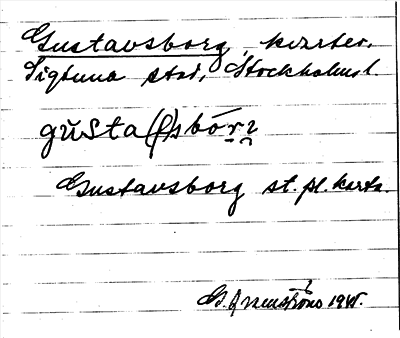 Gustavsborg, kvarter,
Sigtuna stad, Stockholms l.
gŭsta(f)sbór2
Gustavsborg st.pl.karta.
G. 19